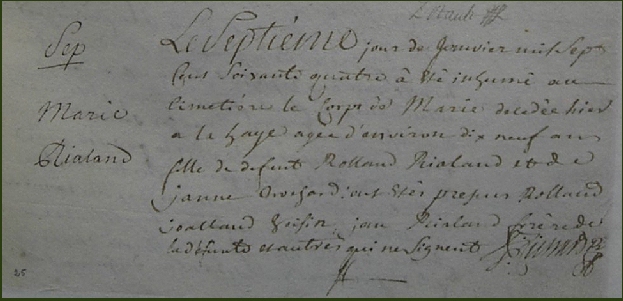 Sep
Marie
Rialand
Le Septiéme jour de Janvier mil Sept
Cent Soixante quatre à été inhumé au
Cimetiére le Corps de Marie decedée hier
a la haye agee d'environ dix neuf an
fille de defunt Rolland Rialand et de
janne ont étés presens Rolland
joalland voisin, jan Rialand frère de
la defunte et autres qui ne Signent
25